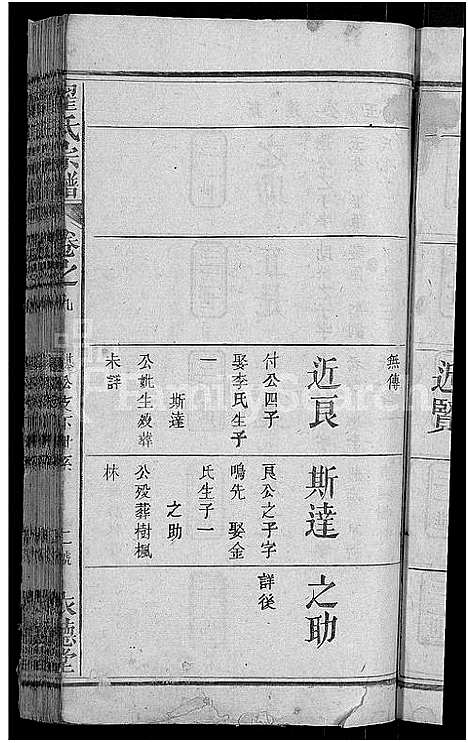 近賢
無傳
近良
付公四子
娶李氏生子
一
斯達
公妣生歿葬
未詳
斯達
良公之子字
鳴先 娶金
氏生子一
之助
公歿葬樹楓
林
之助
詳後
翟氏宗譜
卷之九
FamilySearch